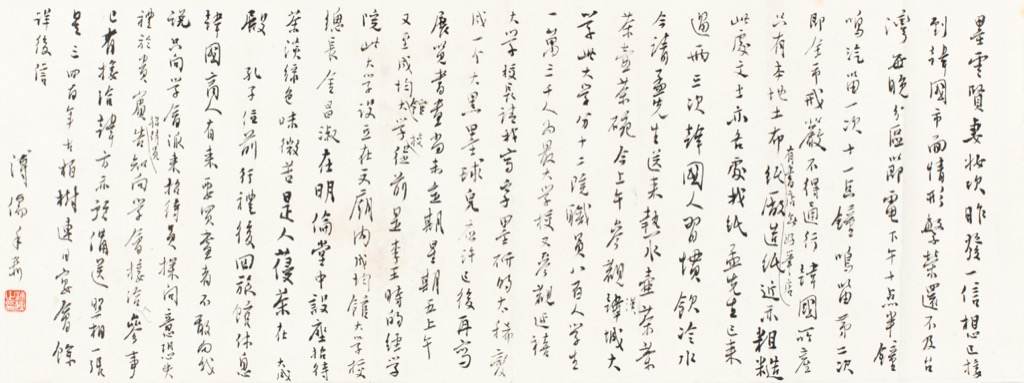 墨雲賢妻妝次昨發一信想已接
到韓國市面情形繁榮還不及台
灣每晚分區節電下午十点半鐘
鳴汽笛一次十一点鐘鳴笛第二次
即全市戒嚴不得通行韓國所產
只有本地土布紙倣造紙近亦粗糙
此處文士亦各處找紙孟先生已来
過兩三次韓國人習慣飲冷水
今請孟先生送来熱水壺茶葉
茶壺茶碗今上午參觀漢城大
學此大学分十二院職員八百人学生
一萬三千人為最大学校又參觀延禧
大学校長請我寫字墨研的太稀變
成一个大黑墨球兒應許以後再寫
展覽書畫尚未定期星期五上午
又至成均館大学經前是李王時的經学
院此大学設立在文廟内成均館大学校
總長金昌淑在明倫堂中設座招待
茶淡綠色味微苦是人葠茶在大成
殿 孔子位前行禮後回旅館休息
韓國商人有来要買畫者不敢向我
説只向学會派来招待員探問意恐失
禮於貴賓招待員告知向学會接洽參事
已有接洽韓方亦預備送照相一張
是三四百年古柏樹連日宴會餘
詳後信
溥儒手肅